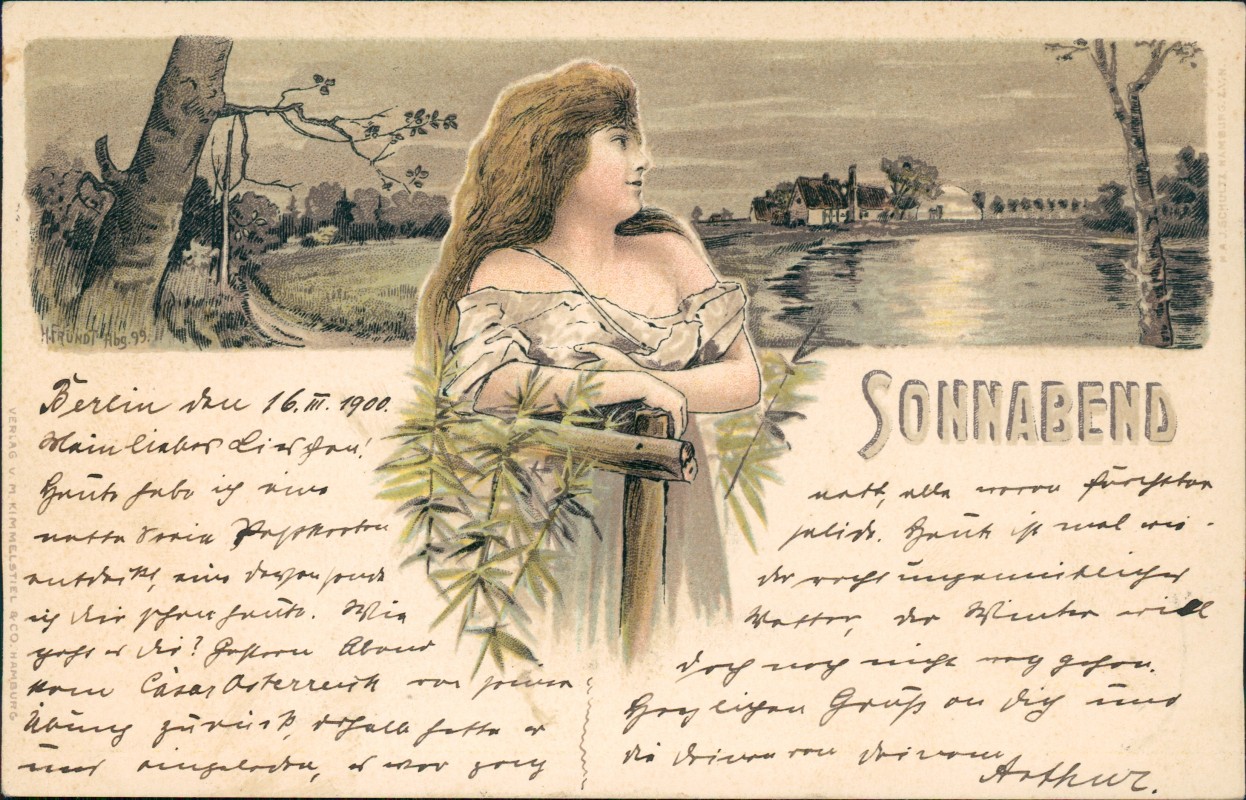 H. FRÜNDT Hbg. 99.
SONNABEND
Berlin den 16. III. 1900.
Mein liebes Lieschen!
Heute habe ich eine
nette Serie Postkarten
entdeckt, eine davon sende
ich dir schon heute. Wie
geht es dir? Gestern Abend
kam Cäsar Osterreich von seiner
Übung zurück, deshalb hatte er
uns eingeladen, es war ganz
nett, alle waren furchtbar
solide. Heute ist mal wie-
der recht ungemütliches
Wetter, der Winter will
doch noch nicht weg gehen.
Herzlichen Gruß an dich und
die Deinen von deinem
Arthur.
VERLAG V. M. KIMMELSTIEL & CO. HAMBURG